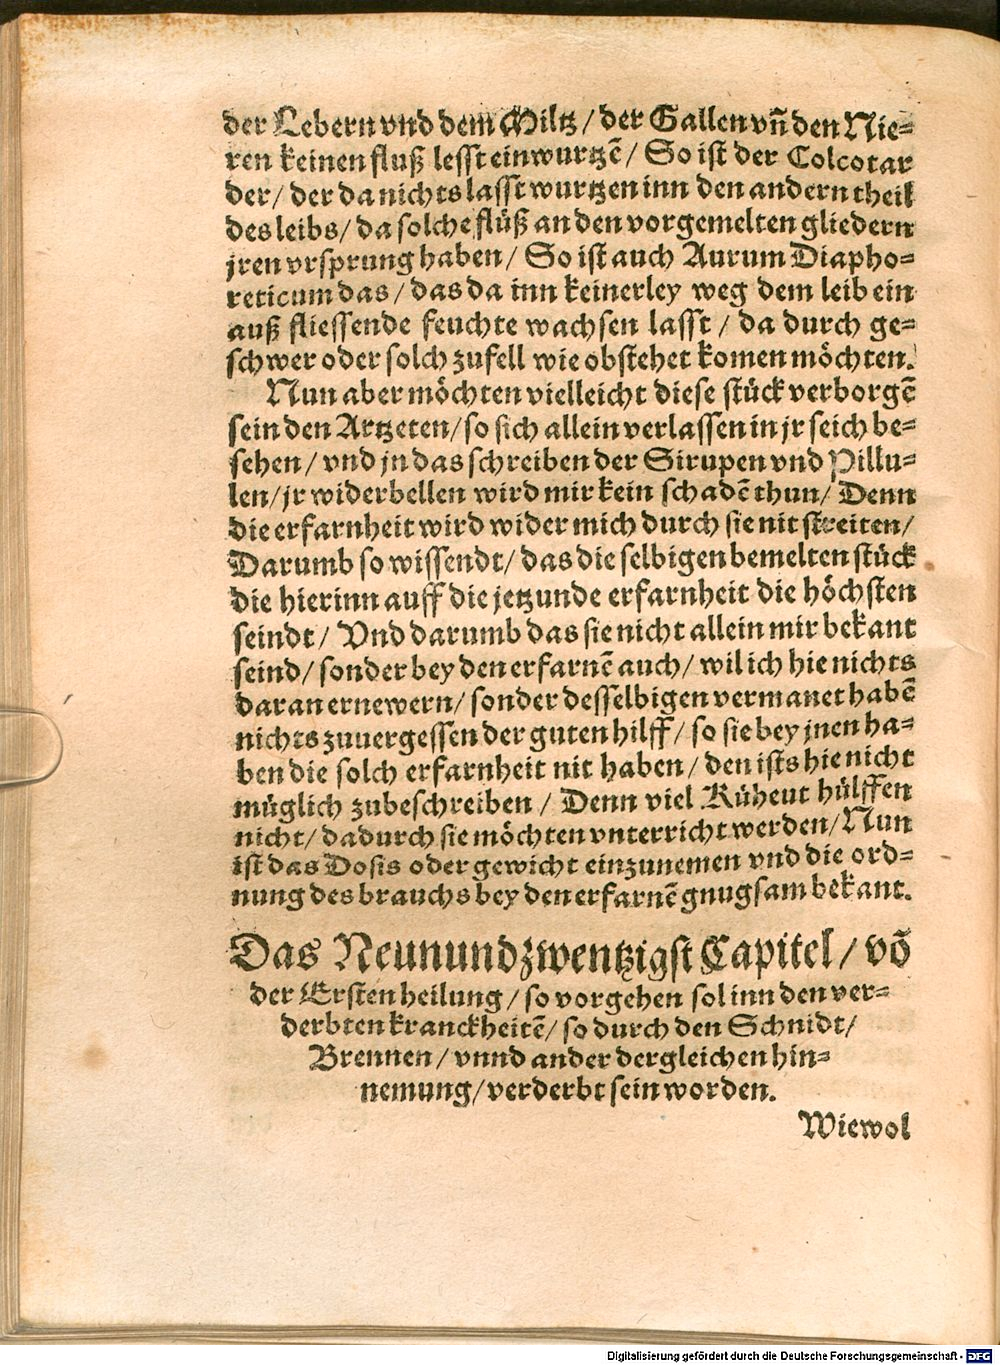 der Lebern vnd dem Miltz / der Gallen vn̄ den Nie=
ren keinen fluß lesst einwurtzē / So ist der Colcotar
der / der da nichts lasst wurtzen inn den andern theil
des leibs / da solche flüß an den vorgemelten gliedern
jren vrsprung haben / So ist auch Aurum Diapho=
reticum das / das da inn keinerley weg dem leib ein
auß fliessende feuchte wachsen lasst / da durch ge=
schwer oder solch zufell wie obstehet komen möchten.
Nun aber möchten vielleicht diese stück verborgē
sein den Artzeten / so sich allein verlassen in jr seich be=
sehen / vnd jn das schreiben der Sirupen vnd Pillu=
len / jr widerbellen wird mir kein schadē thun / Denn
die erfarnheit wird wider mich durch sie nit streiten /
Darumb so wissendt / das die selbigen bemelten stück
die hierinn auff die jetzunde erfarnheit die höchsten
seindt / Vnd darumb das sie nicht allein mir bekant
seind / sonder bey den erfarnē auch / wil ich hie nichts
daran ernewern / sonder desselbigen vermanet habē
nichts zuuergessen der guten hilff / so sie bey jnen ha=
ben die solch erfarnheit nit haben / den ists hie nicht
müglich zubeschreiben / Denn viel Küheut hülffen
nicht / dadurch sie möchten vnterricht werden / Nun
ist das Dosis oder gewicht einzunemen vnd die ord=
nung des brauchs bey den erfarnē gnugsam bekant.
Das Neunundzwentzigst Capitel / vō
der Ersten heilung / so vorgehen sol inn den ver=
derbten kranckheitē / so durch den Schnidt /
Brennen / vnnd ander dergleichen hin=
nemung / verderbt sein worden.
Wiewol
Digitalisierung gefördert durch die Deutsche Forschungsgemeinschaft - DFG